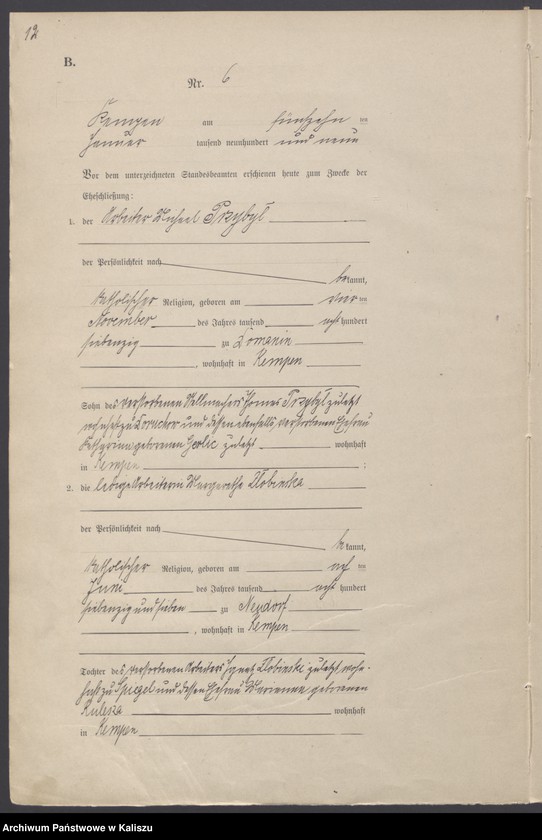 12
B.
Nr. 6
Kempen am fünfzehn ten
Januar tausend neunhundert und neun
Vor dem unterzeichneten Standesbeamten erschienen heute zum Zwecke der
Eheschließung:
1. der Arbeiter Michael Przybyl
der Persönlichkeit nach
bekannt,
katholischer Religion, geboren am vier ten
November des Jahres tausend acht hundert
siebenzig zu Domanin
, wohnhaft in Kempen
Sohn des verstorbenen Przybyl zuletzt
wohnhaft zu und dessen ebenfalls verstorbenen Ehefrau
Katharina geborenen zuletzt wohnhaft
in Kempen ;
2. die ledige Arbeiterin Margaretha
der Persönlichkeit nach
bekannt,
katholischer Religion, geboren am ten
Juni des Jahres tausend acht hundert
siebenzig und sieben zu Neudorf
, wohnhaft in Kempen
Tochter des verstorbenen Arbeiters Ignatz zuletzt wohn-
haft zu Spiegel und dessen Ehefrau Marianna geborenen
Kulesza wohnhaft
in Kempen
Archiwum Państwowe w Kaliszu